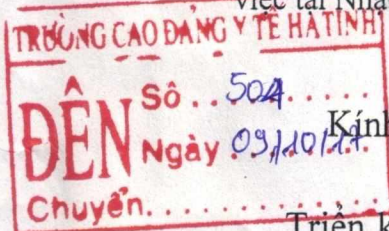 việc tại Nhà
TRƯỜNG CAO ĐẲNG Y TẾ HÀ TĨNH
ĐẾN
Số . . 504 . . . . .
Ngày . 09/10/17
Kính
Chuyển. . . . . . . . . . . . . .
Triển k